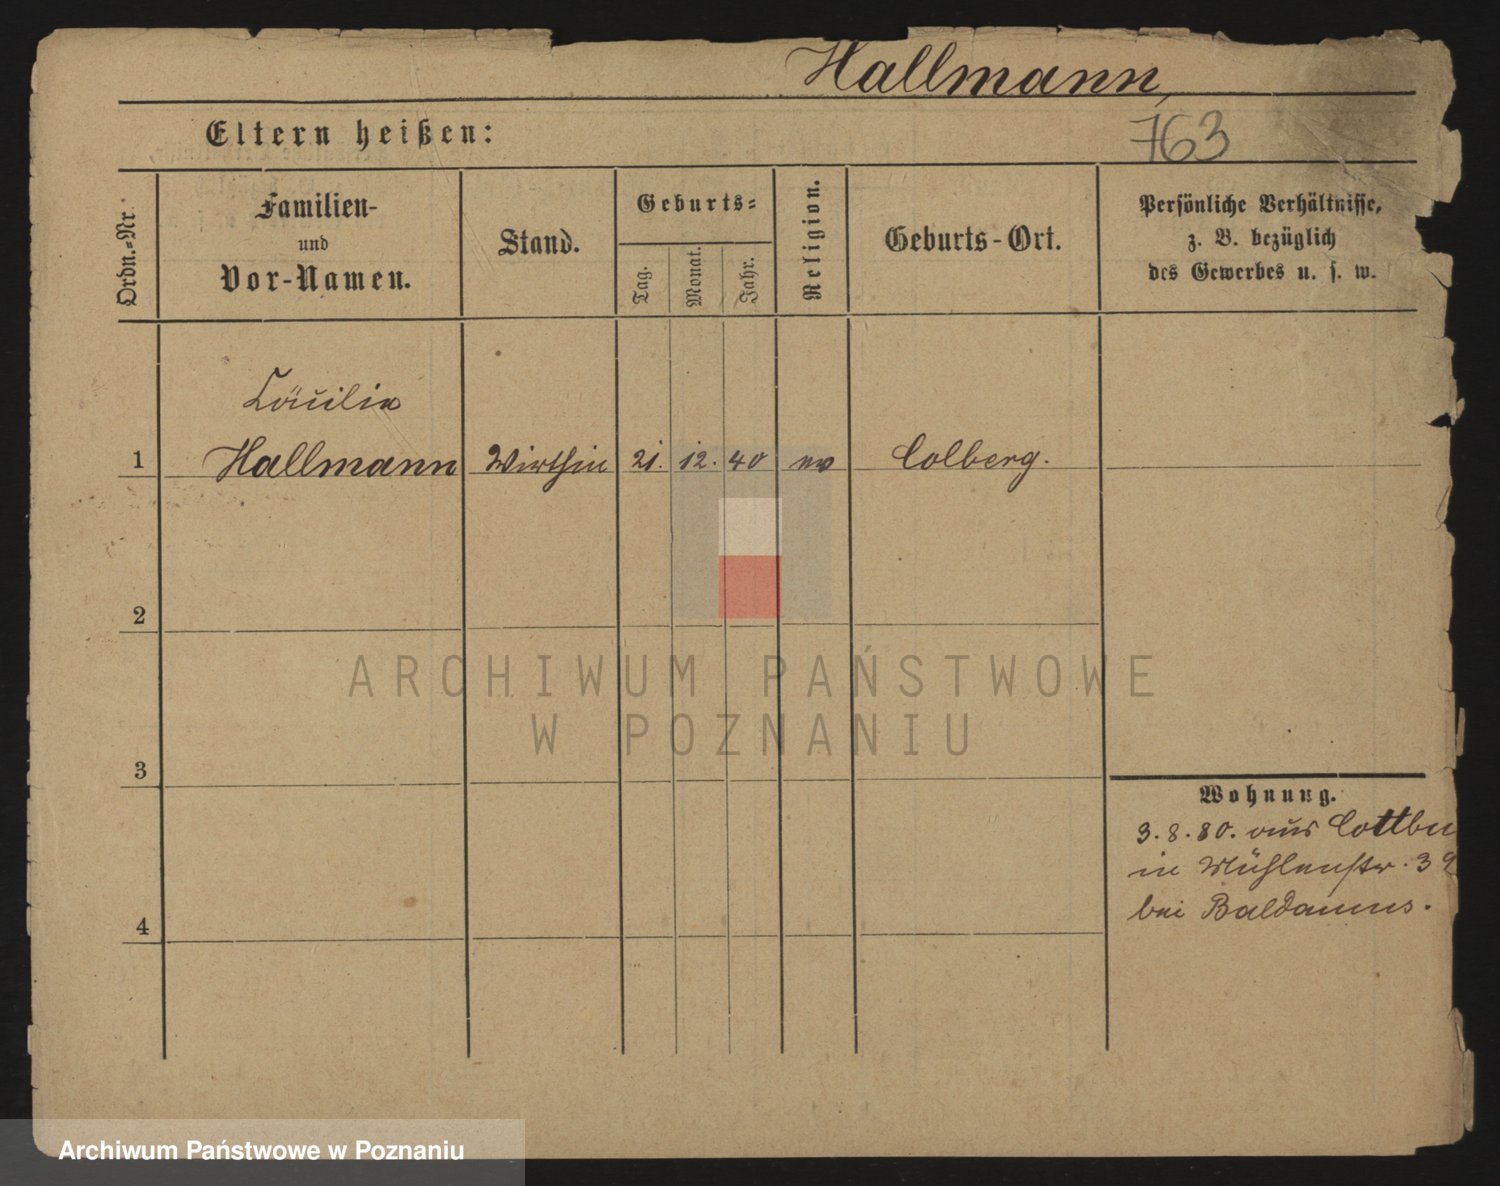 Hallmann,
763
Eltern heißen:
Ordn.=Nr.
Familien-
und
Vor-Namen.
Stand.
Geburts=
Tag.
Monat.
Jahr.
Religion.
Geburts-Ort.
Persönliche Verhältnisse,
z. B. bezüglich
des Gewerbes u. s. w.
1
Hallmann Wirthin 21. 12. 40 ev Colberg.
2
3
4
Wohnung.
3. 8. 80. aus Cottbu
in Mühlenstr. 39
bei Baldamus.
ARCHIWUM PAŃSTWOWE
W POZNANIU
Archiwum Państwowe w Poznaniu